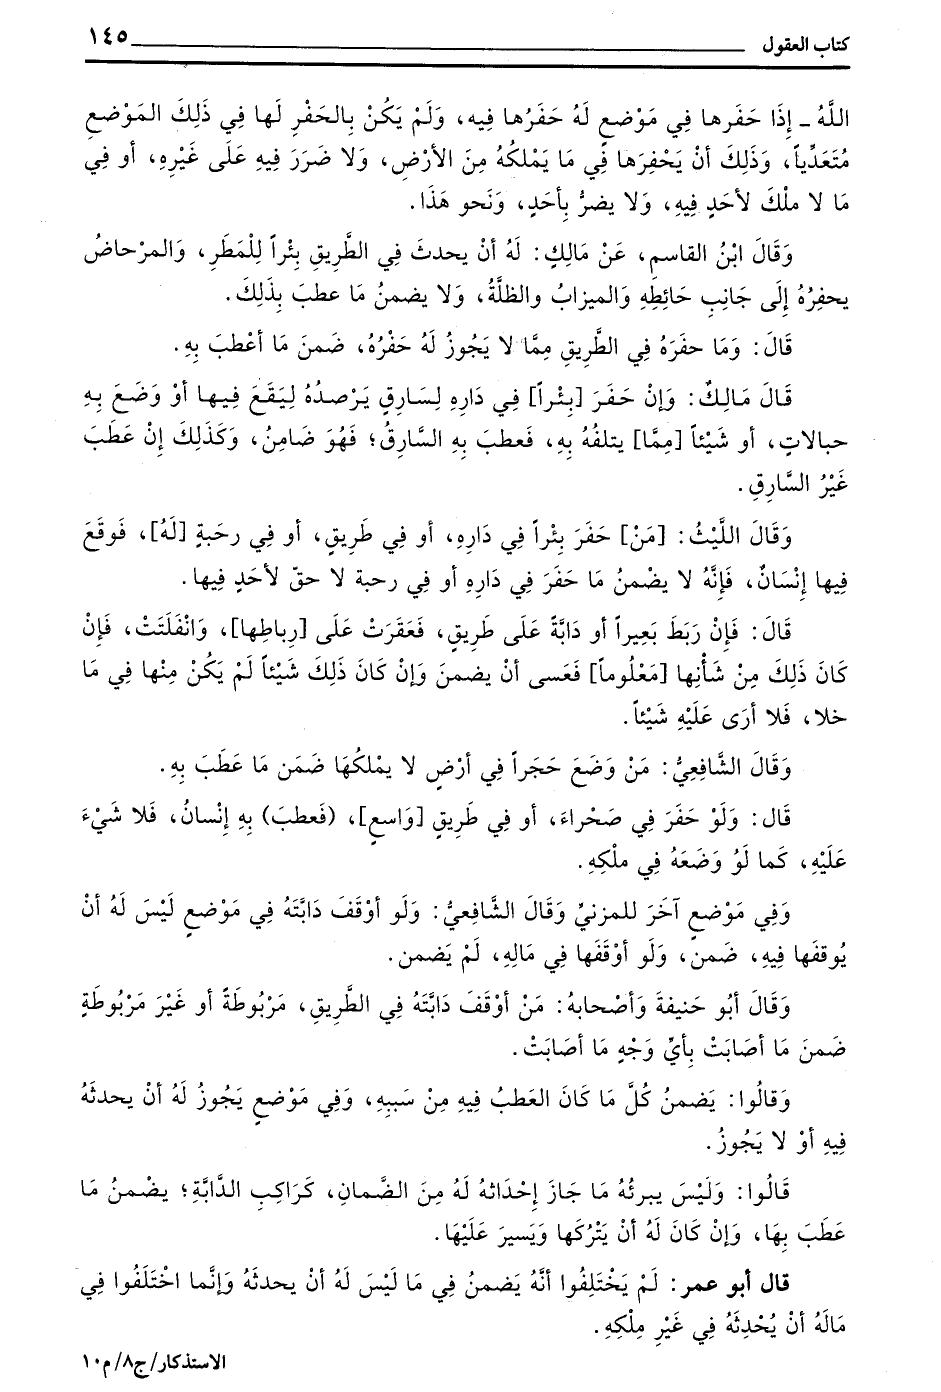 كتاب العقول ١٤٥
اللَّهُ ـ إِذَا حَفَرها فِي مَوْضعٍ لَهُ حَفَرُها فِيه، وَلَمْ يَكُنْ بِالحَفْرِ لَها فِي ذَلِكَ المَوْضعِ
مُتَعَدِّياً، وَذَلِكَ أنْ يَحْفِرَها فِي مَا يَمْلكُهُ مِنَ الأرْضِ، وَلا ضَرَرَ فِيهِ عَلَى غَيْرِهِ، أو فِي
مَا لا ملْكَ لأحَدٍ فِيهِ، وَلا يضرُّ بِأحَدٍ، وَنَحو هَذَا.
وَقَالَ ابْنُ القاسم، عَنْ مَالِكٍ: لَهُ أنْ يحدثَ فِي الطَّرِيقِ بِئْراً لِلْمَطَرِ، وَالمرْحاضُ
يحفِرُهُ إِلَى جَانِبِ حَائِطِهِ وَالميزابُ والظلَّةُ، وَلا يضمنُ مَا عطبَ بِذَلِكَ.
قَالَ: وَمَا حفَرَهُ فِي الطَّرِيقِ مِمَّا لا يَجُوزُ لَهُ حَفْرُهُ، ضَمنَ مَا أعْطبَ بِهِ.
قَالَ مَالِكٌ: وَإنْ حَفَرَ [بِئْراً] فِي دَارِهِ لِسَارِقٍ يَرْصدُهُ لِيَقَعَ فِيها أوْ وَضَعَ بِهِ
حبالاتٍ، أو شَيْئاً [مِمَّا] يتلفُهُ بِهِ، فَعطبَ بِهِ السَّارِقُ؛ فَهُوَ ضَامنٌ، وَكَذَلِكَ إنْ عَطَبَ
غَيْرُ السَّارِقِ.
وَقَالَ اللَّيْثُ: [مَنْ] حَفَرَ بِئْراً فِي دَارِهِ، أو فِي طَرِيقٍ، أو فِي رحَبةٍ [لَهُ]، فَوقَعَ
فِيها إنْسَانٌ، فَإنَّهُ لا يضْمنُ مَا حَفَرَ فِي دَارِهِ أو فِي رحبة لا حقّ لأحَدٍ فِيها.
قَالَ: فَإنْ رَبَطَ بَعِيراً أو دَابَّةً عَلَى طَرِيقٍ، فَعَقَرَتْ عَلَى [رِباطِها]، وَانْفَلَتَتْ، فَإنْ
كَانَ ذَلِكَ مِنْ شَأْنِها [مَعْلُوماً] فَعَسى أنْ يضمنَ وَإنْ كَانَ ذَلِكَ شَيْئاً لَمْ يَكُنْ مِنْها فِي مَا
خلا، فَلا أرَى عَلَيْهِ شَيْئاً.
وَقَالَ الشَّافِعِيُّ: مَنْ وَضَعَ حَجَراً فِي أرْضٍ لا يمْلكُهَا ضَمَن مَا عَطَبَ بِهِ.
قَال: وَلَوْ حَفَرَ فِي صَحْراءَ، أو فِي طَرِيقٍ [وَاسعٍ]، (فَعطبَ) بِهِ إنْسانُ، فَلا شَيْءَ
عَلَيْهِ، كَما لَوْ وَضَعَهُ فِي ملْكِهِ.
وَفِي مَوْضعٍ آخَرَ للمزنيِّ وَقَالَ الشَّافِعيُّ: وَلَو أوْقَفَ دَابَّتَهُ فِي مَوْضعٍ لَيْسَ لَهُ أنْ
يُوقفَها فِيهِ، ضَمن، وَلَو أوْقَفَها فِي مَالِهِ، لَمْ يَضمن.
وَقَالَ أبُو حَنيفةَ وَأصْحابهُ: مَنْ أوْقَفَ دَابَّتَهُ فِي الطَّرِيقِ، مَرْبُوطَةً أو غَيْرَ مَرْبُوطَةٍ
ضَمنَ مَا أصَابَتْ بِأيِّ وَجْهٍ مَا أصَابَتْ.
وَقَالُوا: يَضمنُ كُلَّ مَا كَانَ العَطبُ فِيهِ مِنْ سَببِهِ، وَفِي مَوْضعٍ يَجُوزُ لَهُ أنْ يحدثَهُ
فِيهِ أوْ لا يَجُوزُ.
قَالُوا: وَلَيْسَ يبرئُهُ مَا جَازَ إحْدَاثهُ لَهُ مِنَ الضَّمانِ، كَرَاكِبِ الدَّابَّةِ؛ يضْمنُ مَا
عَطَبَ بِهَا، وَإنْ كَانَ لَهُ أنْ يَتْرُكَها وَيَسيرَ عَلَيْهَا.
قال أبو عمر: لَمْ يَخْتَلِفُوا أنَّهُ يَضمنُ فِي مَا لَيْسَ لَهُ أنْ يحدثَهُ وَإنَّما اخْتَلَفُوا فِي
مَالَهُ أنْ يُحْدِثَهُ فِي غَيْرِ مِلْكِهِ.
الاستذكار/ج٨/م١٠